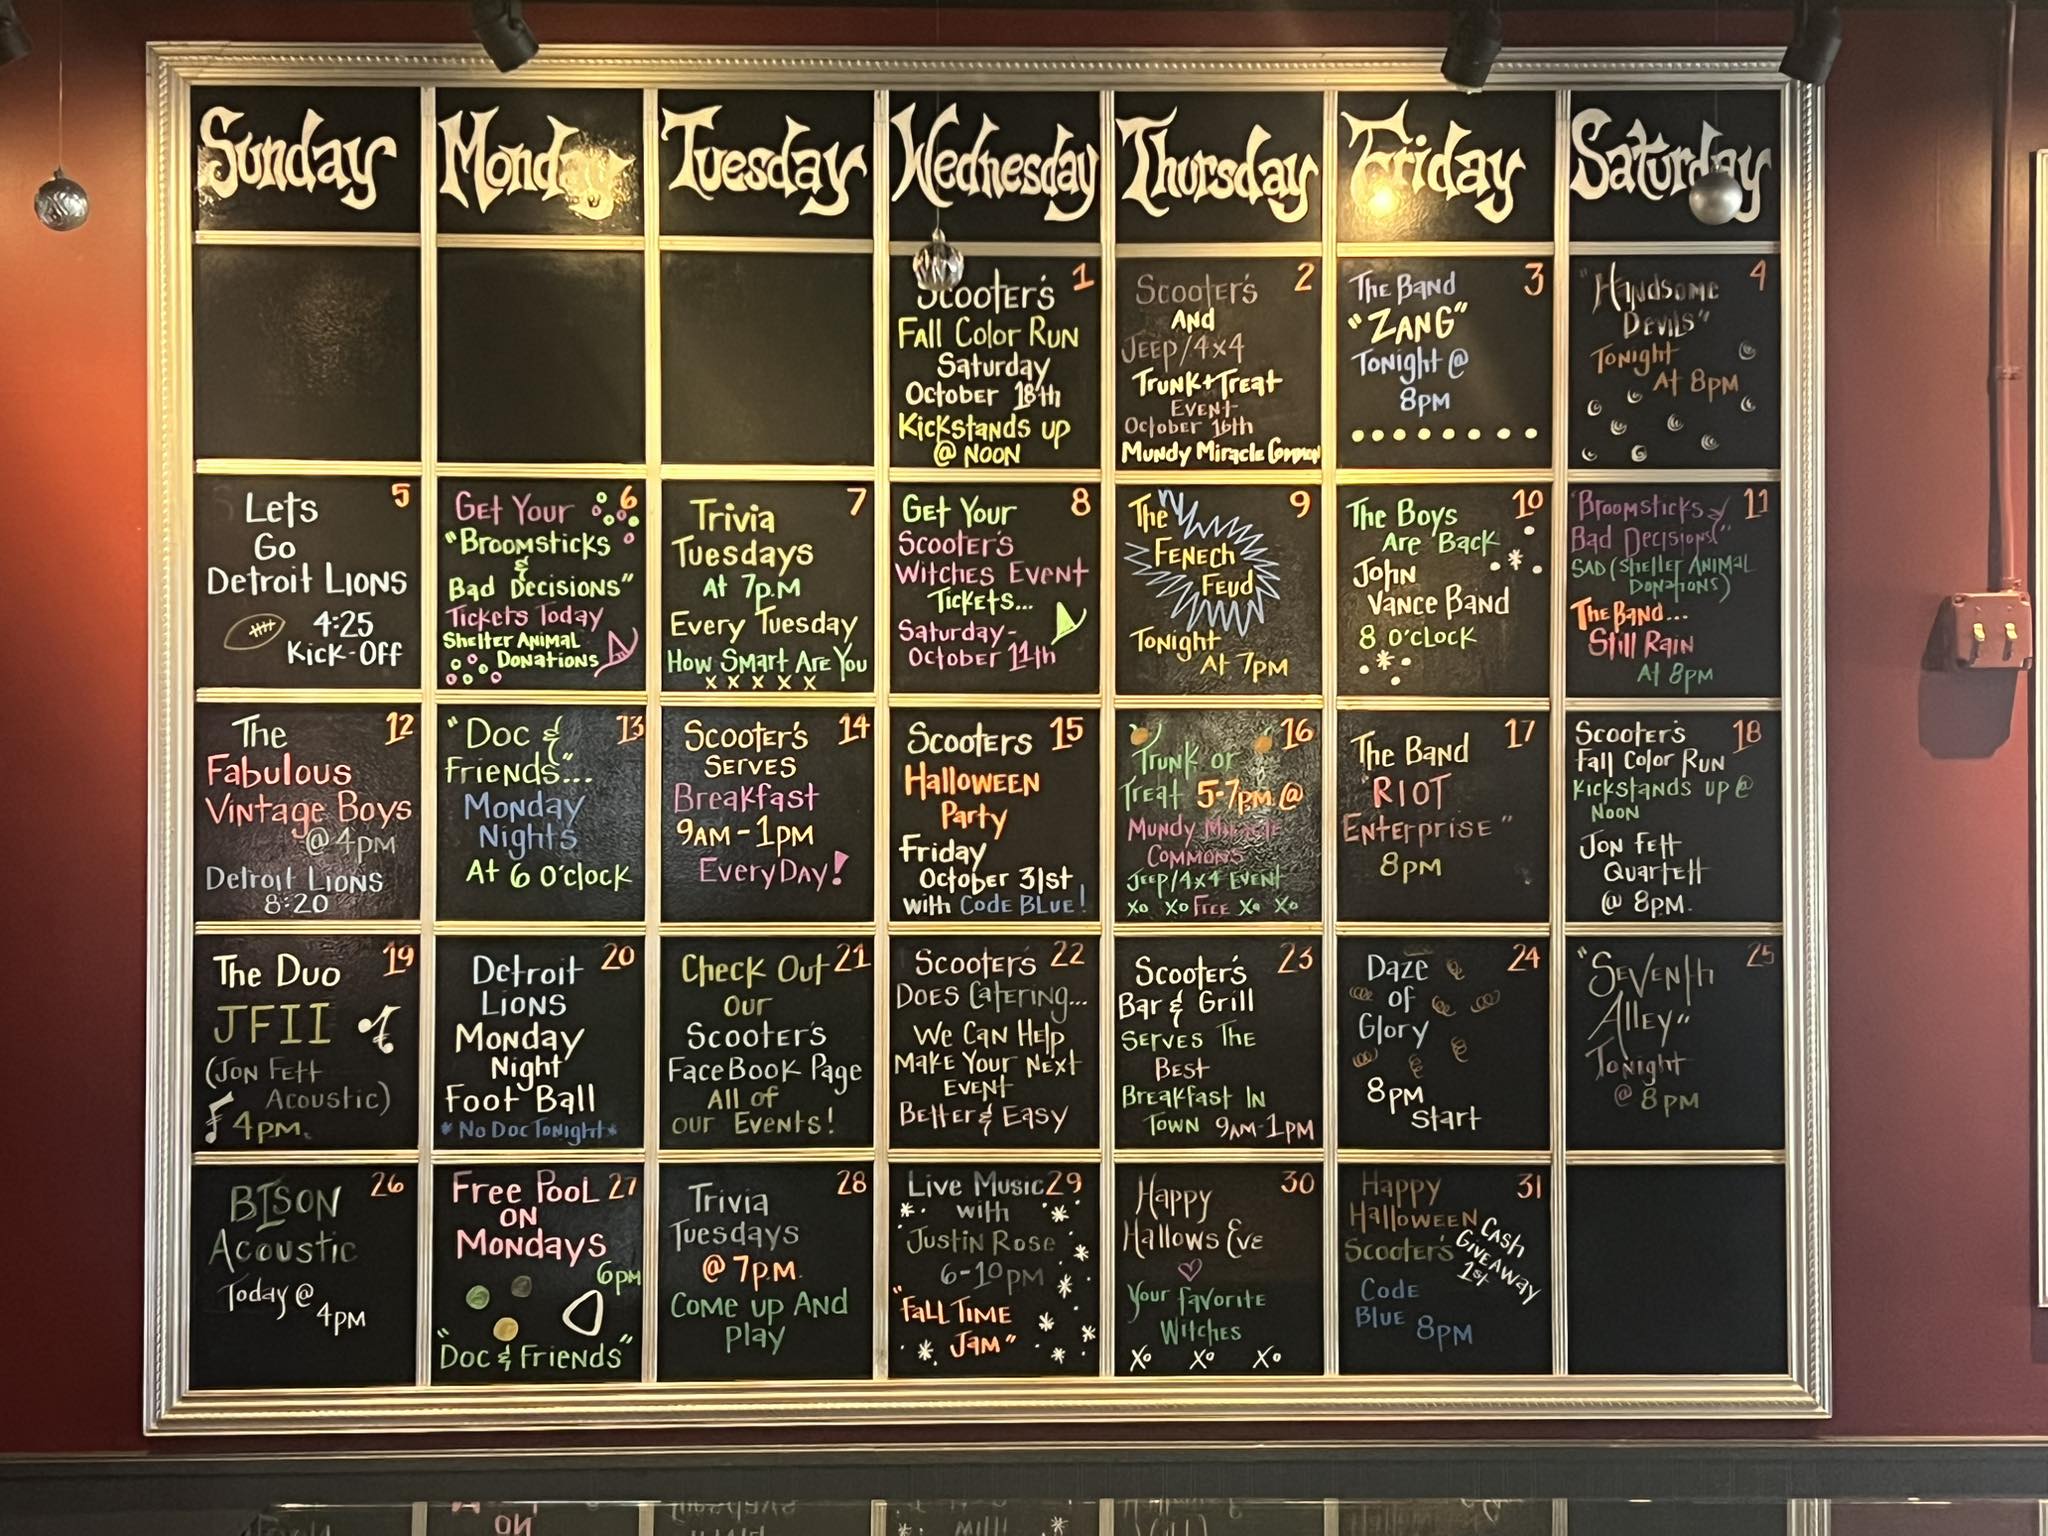 Sunday Monday Tuesday Wednesday Thursday Friday Saturday
1
Scooter's
Fall Color Run
Saturday
October 18th
Kickstands up
@ Noon
2
Scooter's
And
Jeep/4x4
Trunk+Treat
Event
October 16th
Mundy Miracle Common
3
The Band
"ZANG"
Tonight @
8pm
4
"Handsome
Devils"
Tonight
At 8pm
5
Lets
Go
Detroit Lions
4:25
Kick-Off
6
Get Your
"Broomsticks
&
Bad Decisions"
Tickets Today
Shelter Animal
Donations
7
Trivia
Tuesdays
At 7p.m
Every Tuesday
How Smart Are You
x x x x x
8
Get Your
Scooter's
Witches Event
Tickets...
Saturday-
October 11th
9
The
Fenech
Feud
Tonight
At 7pm
10
The Boys
Are Back
John
Vance Band
8 o'clock
11
"Broomsticks &
Bad Decisions"
SAD (Shelter Animal
Donations)
The Band...
Still Rain
At 8pm
12
The
Fabulous
Vintage Boys
@ 4pm
Detroit Lions
8:20
13
"Doc &
Friends"...
Monday
Nights
At 6 o'clock
14
Scooter's
Serves
Breakfast
9am-1pm
EveryDay!
15
Scooters
Halloween
Party
Friday
October 31st
with Code Blue!
16
Trunk or
Treat 5-7pm @
Mundy Miracle
Commons
Jeep/4x4 Event
xo xo Free xo xo
17
The Band
"RIOT
Enterprise"
8pm
18
Scooter's
Fall Color Run
Kickstands up @
Noon
Jon Fett
Quartett
@ 8pm.
19
The Duo
JFII
(Jon Fett
Acoustic)
4pm.
20
Detroit
Lions
Monday
Night
Foot Ball
* No Doc Tonight *
21
Check Out
our
Scooter's
FaceBook Page
All of
our Events!
22
Scooter's
Does Catering...
We Can Help
Make Your Next
Event
Better & Easy
23
Scooter's
Bar & Grill
Serves The
Best
Breakfast In
Town 9am-1pm
24
Daze
of
Glory
8pm
Start
25
"Seventh
Alley"
Tonight
@ 8pm
26
BISON
Acoustic
Today @
4pm
27
Free Pool
on
Mondays
6pm
"Doc & Friends"
28
Trivia
Tuesdays
@ 7p.m.
Come up And
play
29
Live Music
with
Justin Rose
6-10pm
"Fall Time
Jam"
30
Happy
Hallows Eve
Your favorite
Witches
xo xo xo
31
Happy
Halloween
Scooter's
Cash
Giveaway
1st
Code
Blue 8pm